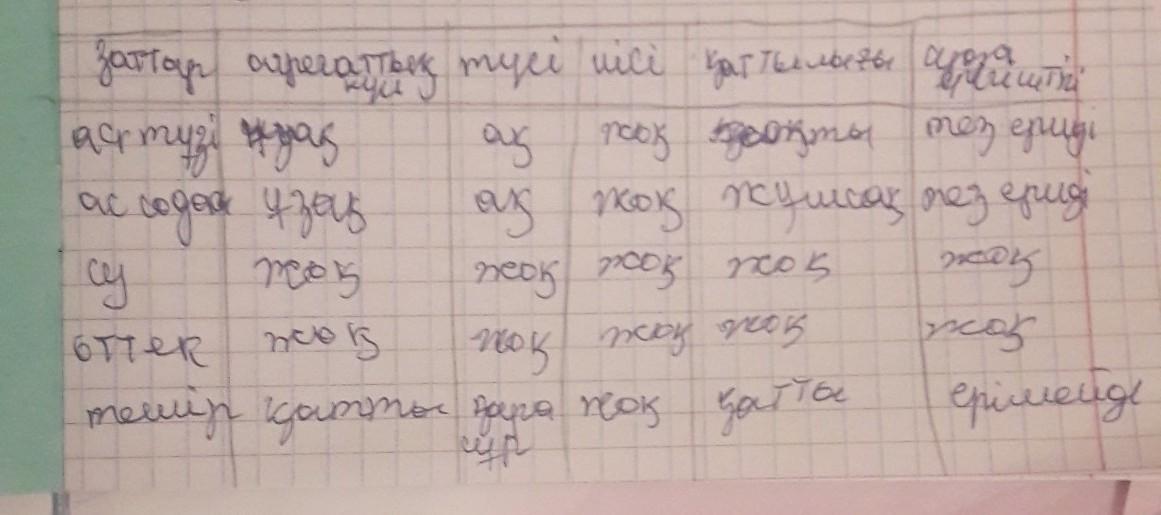 заттар агрегаттық түсі иісі қаттылығы суда
күйі ерігіштігі
ас тұзі ұзақ ақ жоқ қатты тез ериді
ас содасы ұзақ ақ жоқ жұмсақ тез ериді
су жоқ жоқ жоқ жоқ жоқ
оттек жоқ жоқ жоқ жоқ жоқ
темір қатты қара жоқ қатты ерімейді
сұр